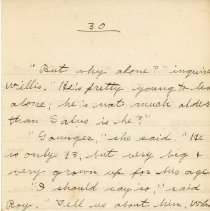 30
"But why alone?" inquire
Willis. "He's pretty young to be
alone; he's not much older
than Salus is he?"
"Younger," she said. "He
is only 13, but very big &
very grown up for his age
"I should say so," said
Roy. "Tell us about him. Wh